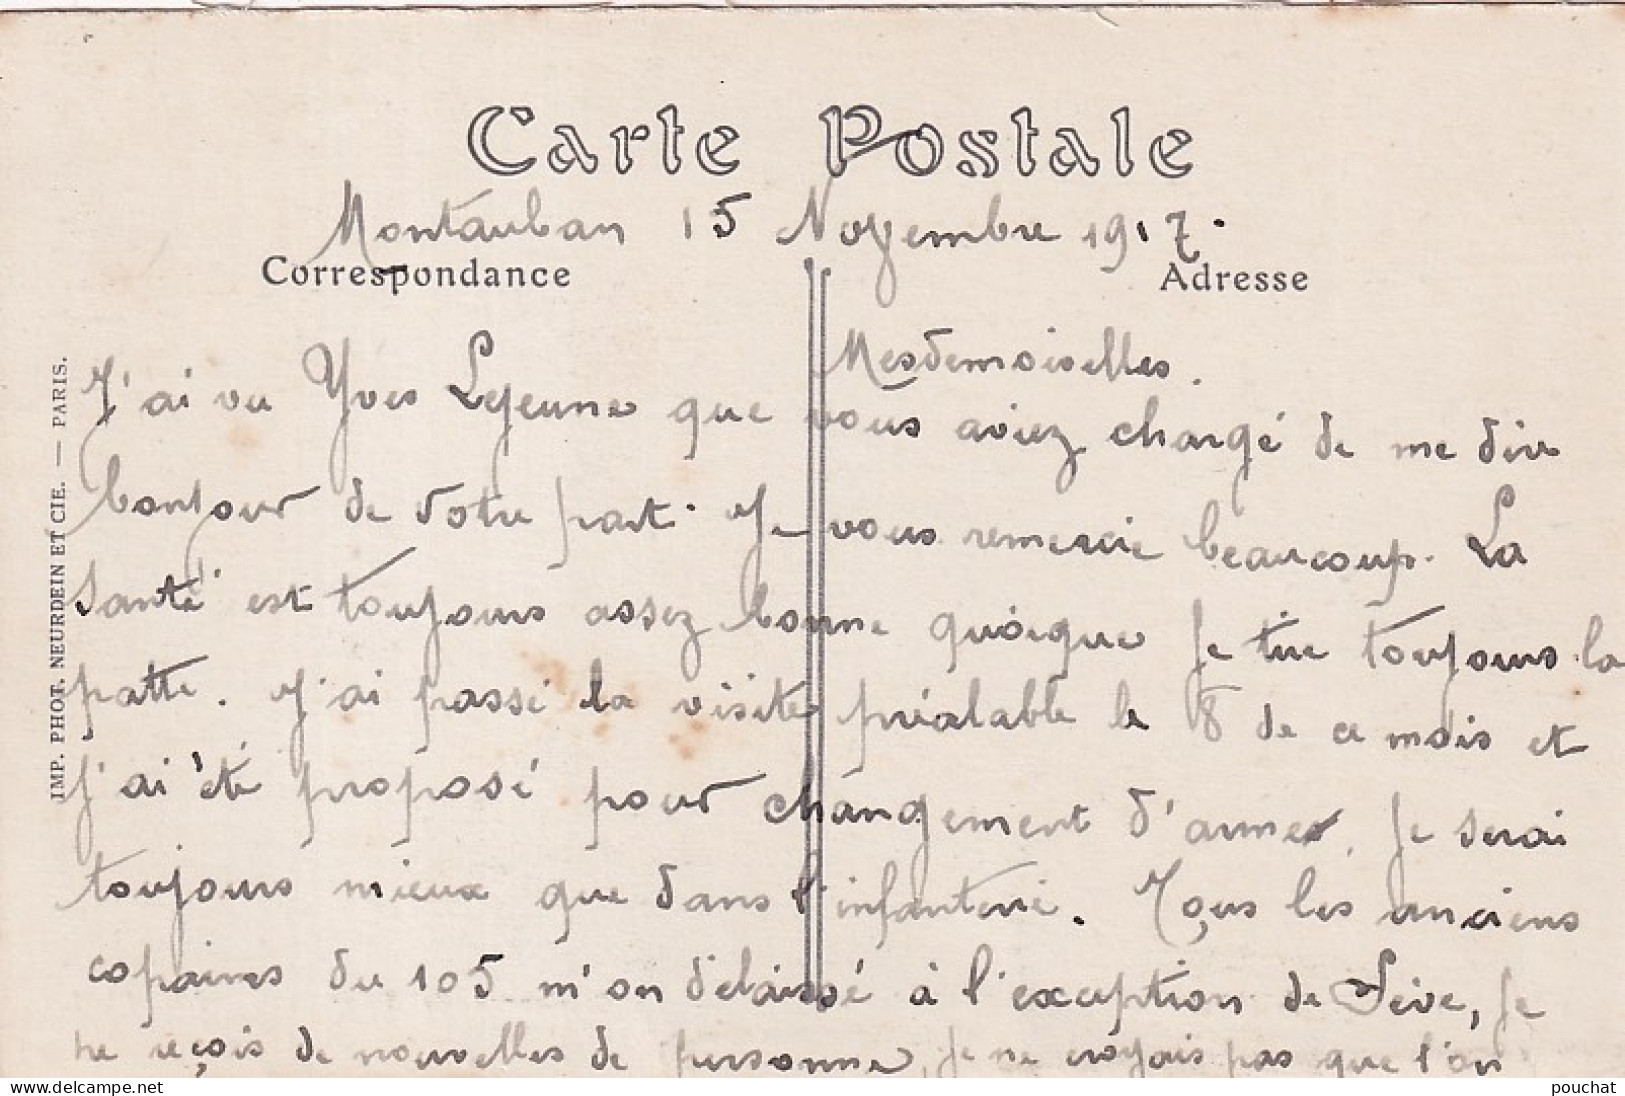 Carte Postale
Montauban 15 Novembre 1917.
Correspondance
Adresse
Mesdemoiselles.
J'ai vu Yves Lejeune que vous aviez chargé de me dire
bonjour de votre part. Je vous remercie beaucoup. La
santé est toujours assez bonne quoique je tire toujours la
patte. J'ai passé la visite préalable le 8 de ce mois et
j'ai été proposé pour changement d'arme, je serai
toujours mieux que dans l'infanterie. Tous les anciens
copains du 105 m'on délaissé à l'exception de Sève, je
ne reçois de nouvelles de personne, je ne croyais pas que l'on
IMP. PHOT. NEURDEIN ET CIE. — PARIS.
delcampe.net
pouchat